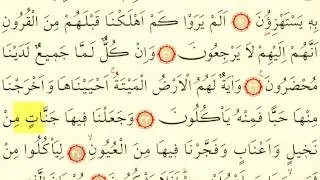 بِهِ يَسْتَهْزِؤُنَ ﴿٣٠﴾ اَلَمْ يَرَوْا كَمْ اَهْلَكْنَا قَبْلَهُمْ مِنَ الْقُرُونِ
اَنَّهُمْ اِلَيْهِمْ لَا يَرْجِعُونَ ﴿٣١﴾ وَاِنْ كُلٌّ لَمَّا جَمِيعٌ لَدَيْنَا
مُحْضَرُونَ ﴿٣٢﴾ وَاٰيَةٌ لَهُمُ الْاَرْضُ الْمَيْتَةُ اَحْيَيْنَاهَا وَاَخْرَجْنَا
مِنْهَا حَبًّا فَمِنْهُ يَأْكُلُونَ ﴿٣٣﴾ وَجَعَلْنَا فِيهَا جَنَّاتٍ مِنْ
نَخِيلٍ وَاَعْنَابٍ وَفَجَّرْنَا فِيهَا مِنَ الْعُيُونِ ﴿٣٤﴾ لِيَأْكُلُوا مِنْ